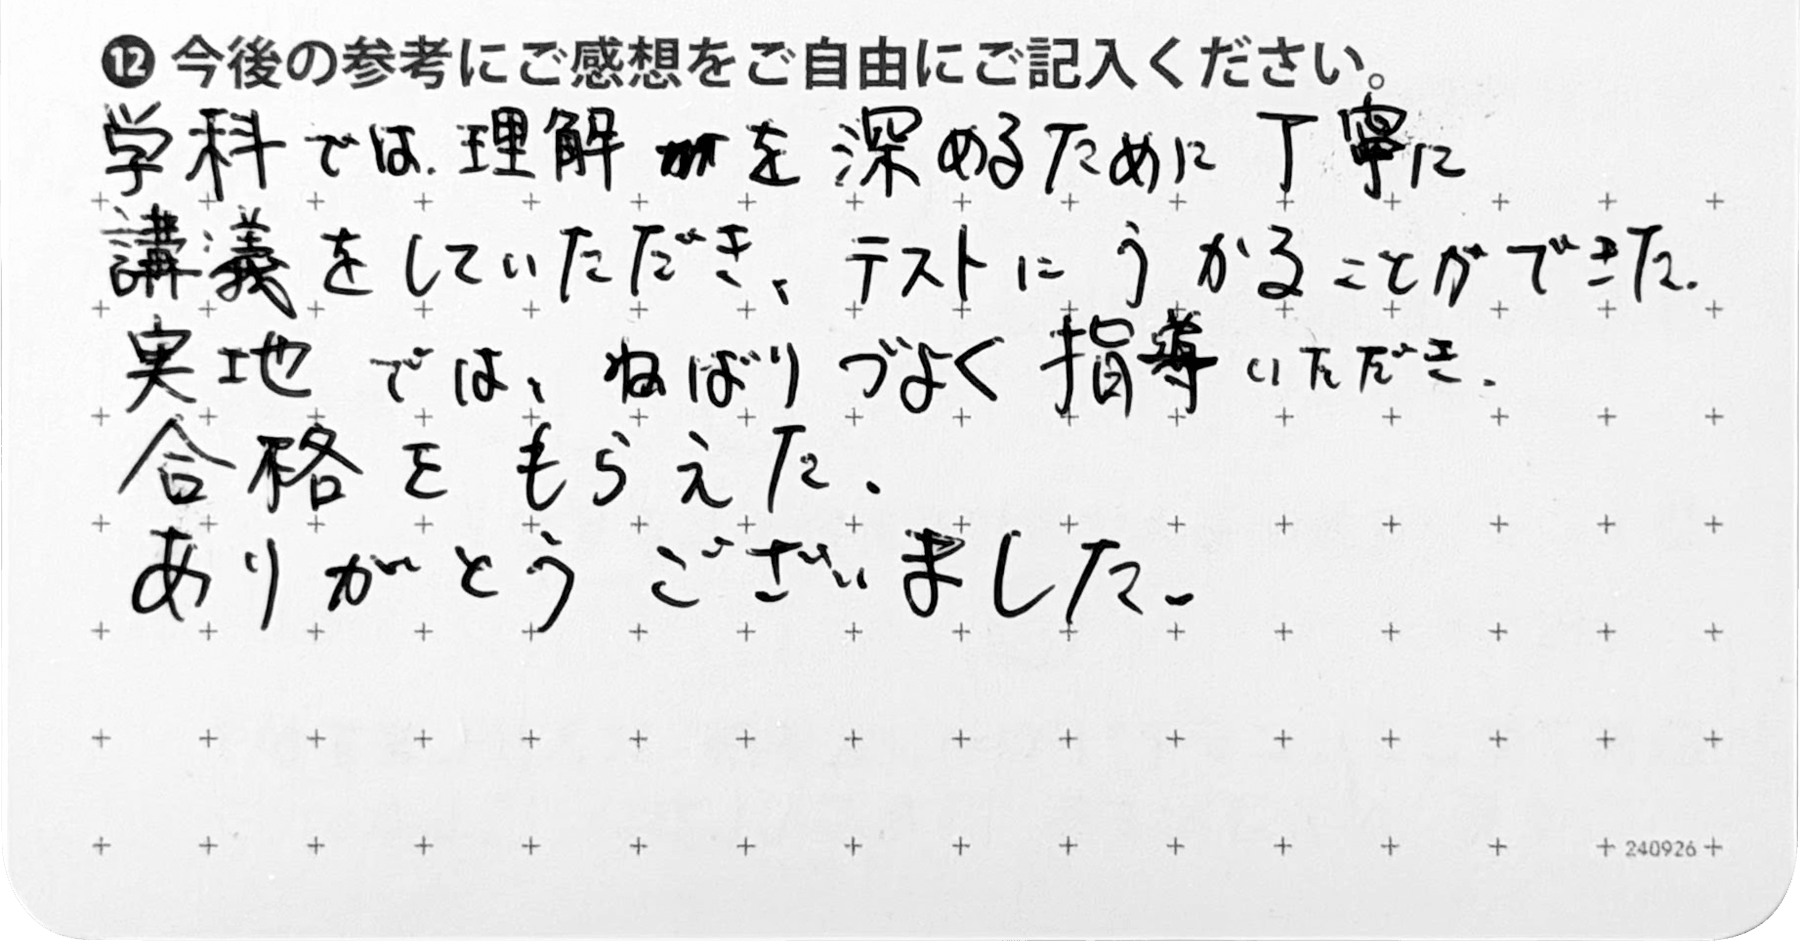 ⓬ 今後の参考にご感想をご自由にご記入ください。
学科では、理解を深めるために丁寧に
講義をしていただき、テストにうかることができた。
実地では、ねばりづよく指導いただき、
合格をもらえた。
ありがとうございました。
240926